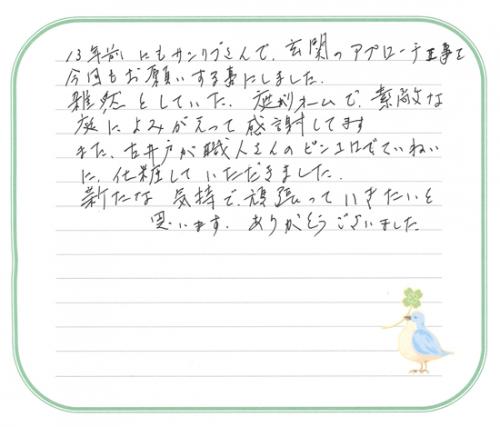 13年前にもサンリブさんで、玄関のアプローチ工事を
今回もお願いする事にしました。
雑然としていた、庭がリフォームで、素敵な
庭によみがえって感謝してます
また、古井戸が職人さんのピンコロでていねい
に、仕粧していただきました。
新たな気持で、頑張っていきたいと
思います。ありがとうございました。